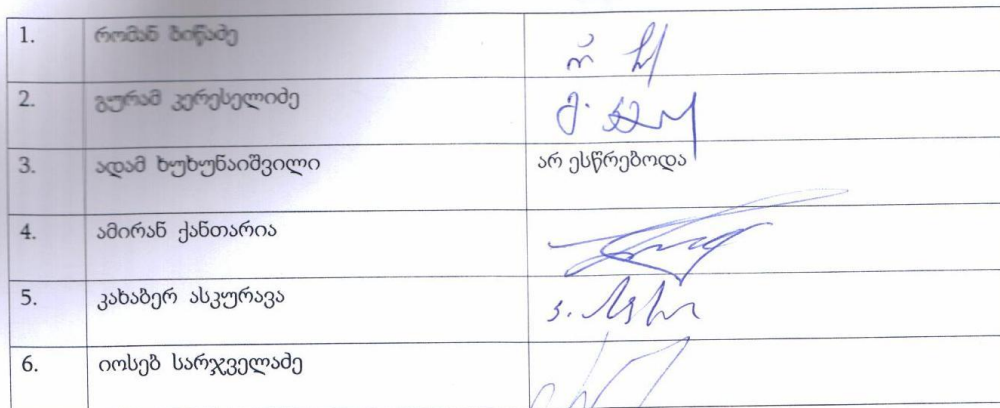 1. რომან ბიწაძე
2. გურამ კერესელიძე
3. ადამ ხუხუნაიშვილი არ ესწრებოდა
4. ამირან ქანთარია
5. კახაბერ ასკურავა
6. იოსებ სარჯველაძე